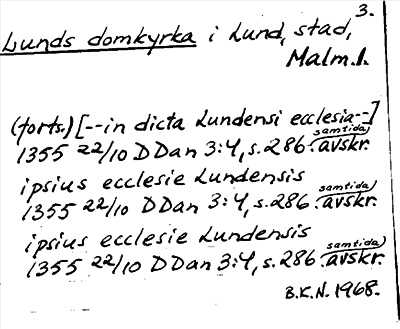 3.
Lunds domkyrka i Lund, stad,
Malm.l.
(forts.) [--in dicta Lundensi ecclesia--]
1355 22/10 DDan 3:4, s.286. (samtida) avskr.
ipsius ecclesie Lundensis
1355 22/10 DDan 3:4, s.286. (samtida) avskr.
ipsius ecclesie Lundensis
1355 22/10 DDan 3:4, s.286. (samtida) avskr.
B.K.N. 1968.